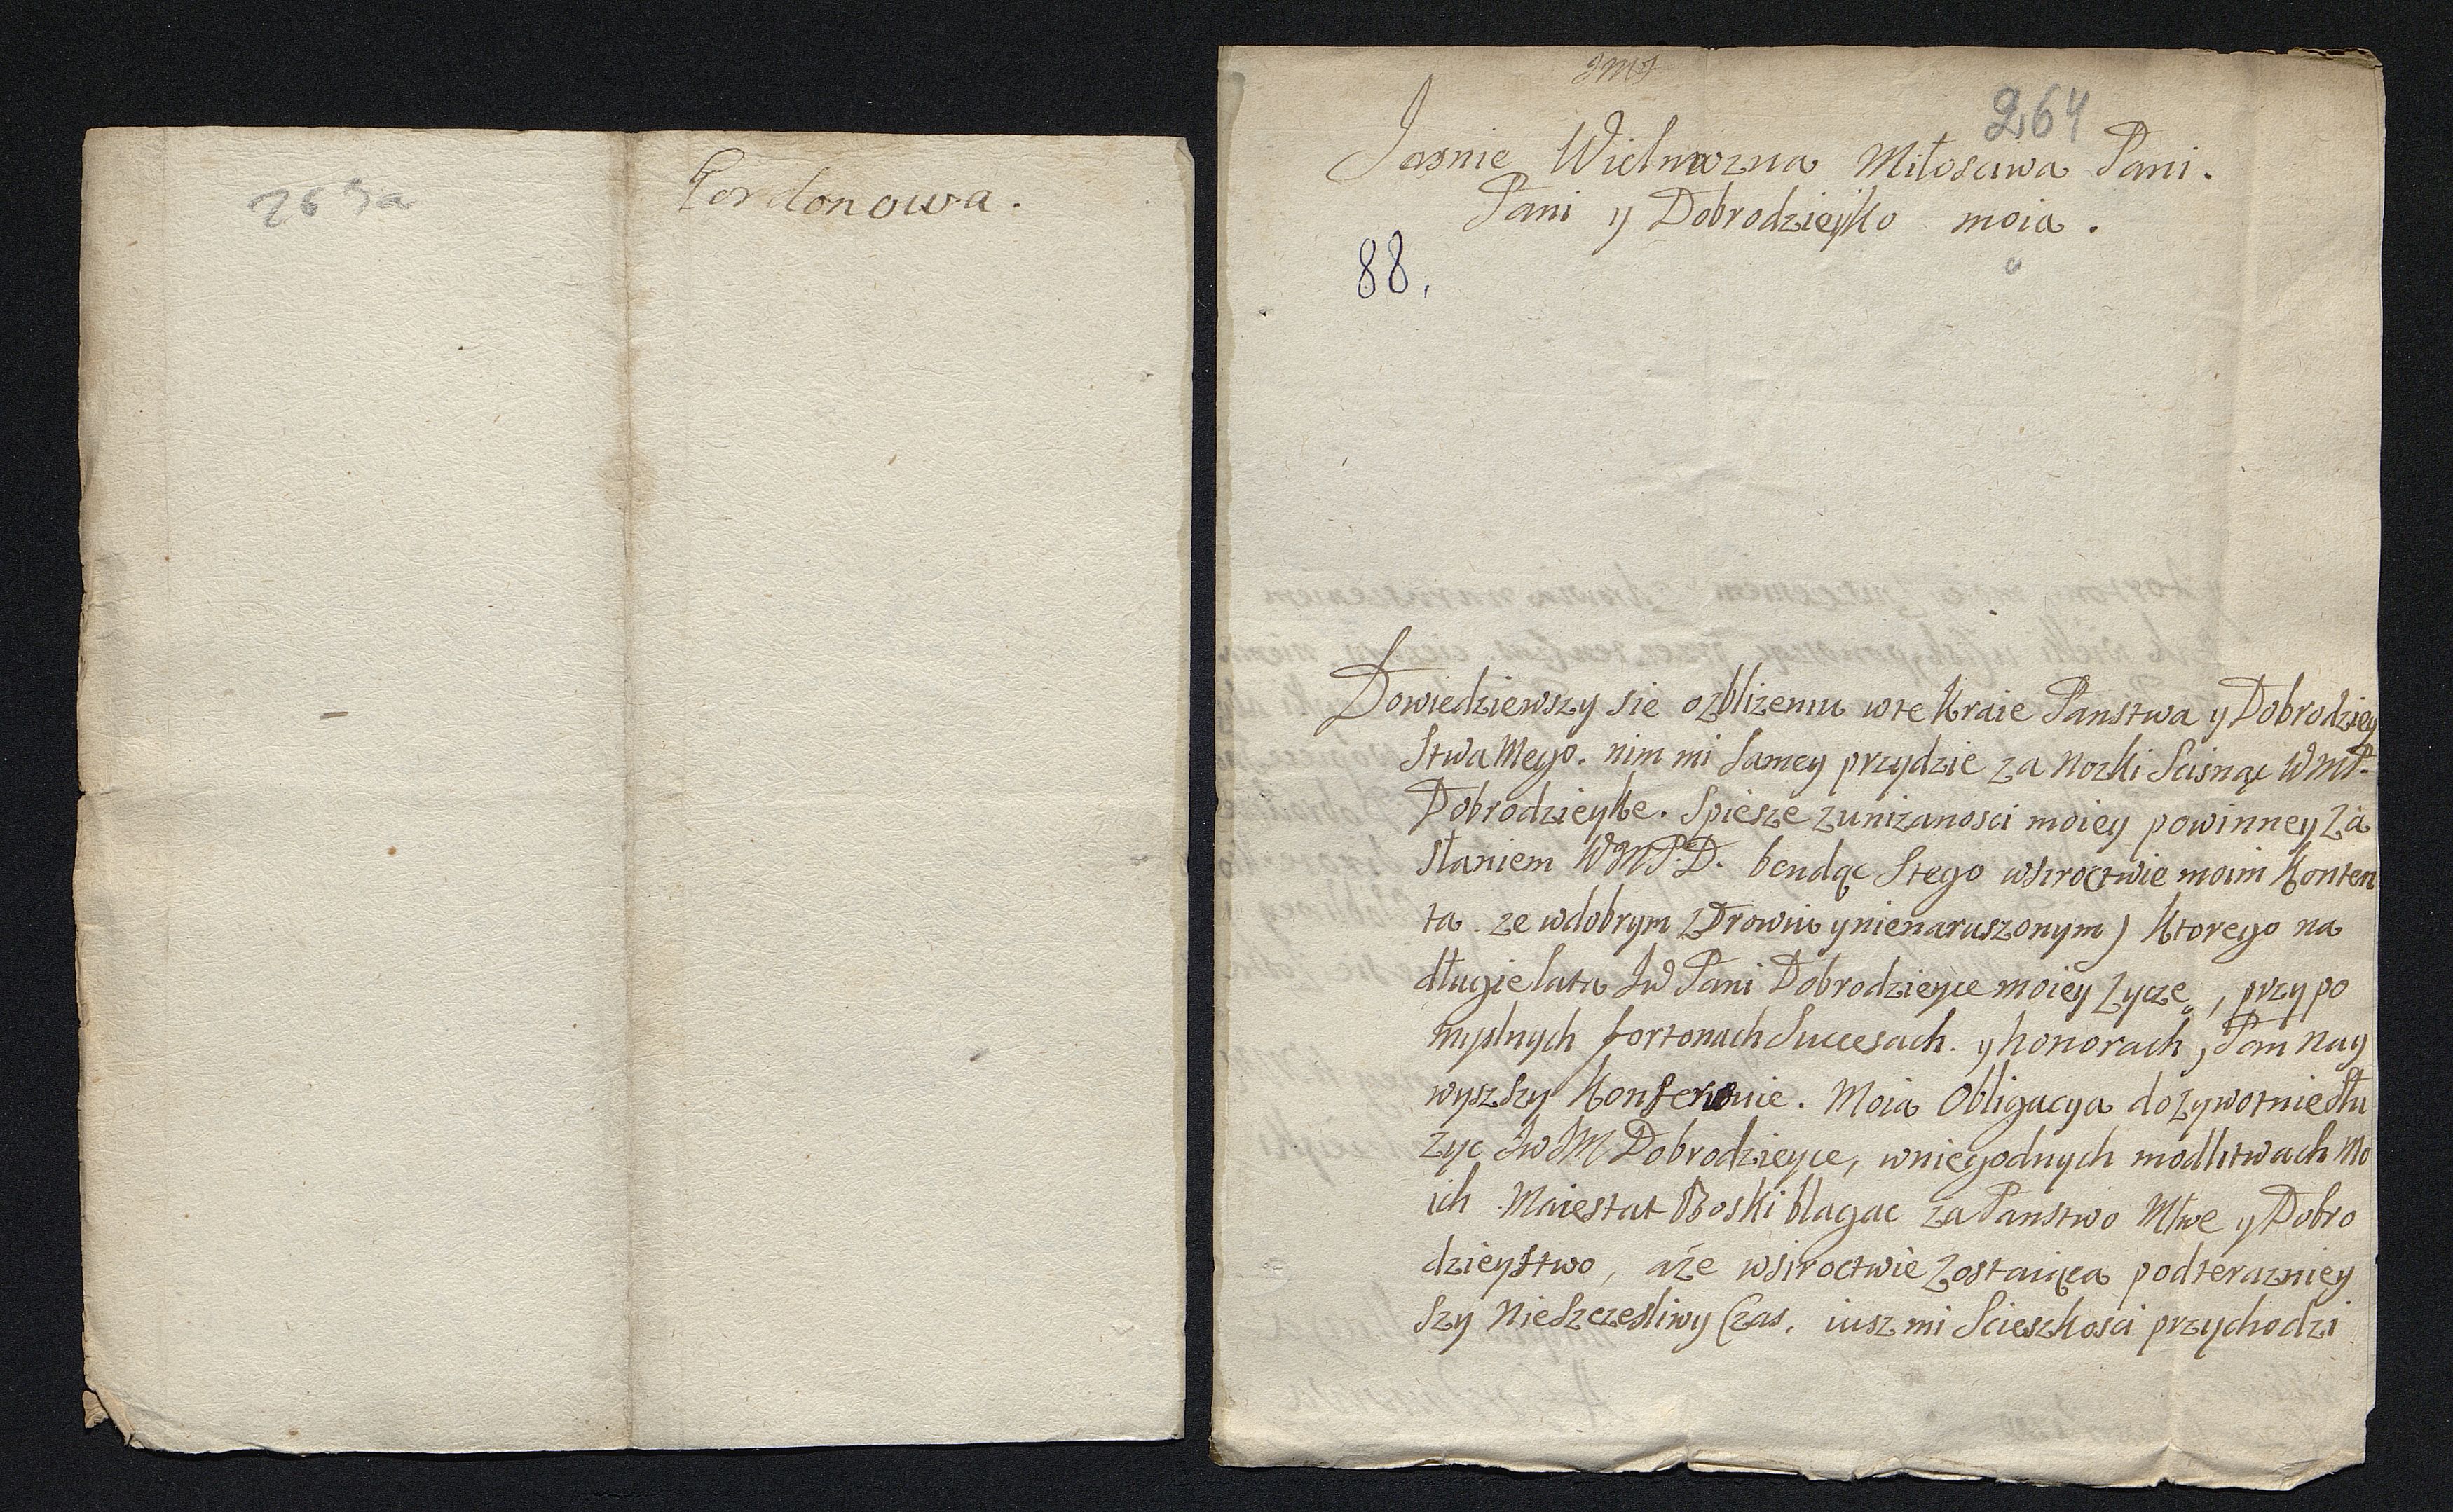 263a
Gordonowa.
JMJ
264
Jasnie Wielmozna Miłosciwa Pani.
Pani y Dobrodzieyko moia.
88.
Dowiedziewszy sie ozbliżeniu wte Kraie Panstwa y Dobrodziey
stwa Mego. nim mi Samey przydzie za Nozki Scisnąc WMP.
Dobrodzieyke. Spiesze zunizanosci moiey powinney Za
słaniem WMP.D. bendąc Stego wsiroctwie moim Konten
ta. ze wdobrym zDrowiu ynienaruszonym) Ktorego na
długie lata JW Pani Dobrodzieyce moiey Zycze, przy po
myslnych fortonach Succesach. y honorach, Pan nay
wyszszy Konserwuie. Moia Obligacya dozywotnie słu
zyc JwJM Dobrodzieyce, wniegodnych modlitwach Mo
ich Maiestat Boski blagac za Panstwo Mwe y Dobro
dzieystwo, aże wsiroctwie Zostaiąca podterazniey
szy Nieszczesliwy Czas, iusz mi Scieszkosci przychodzi